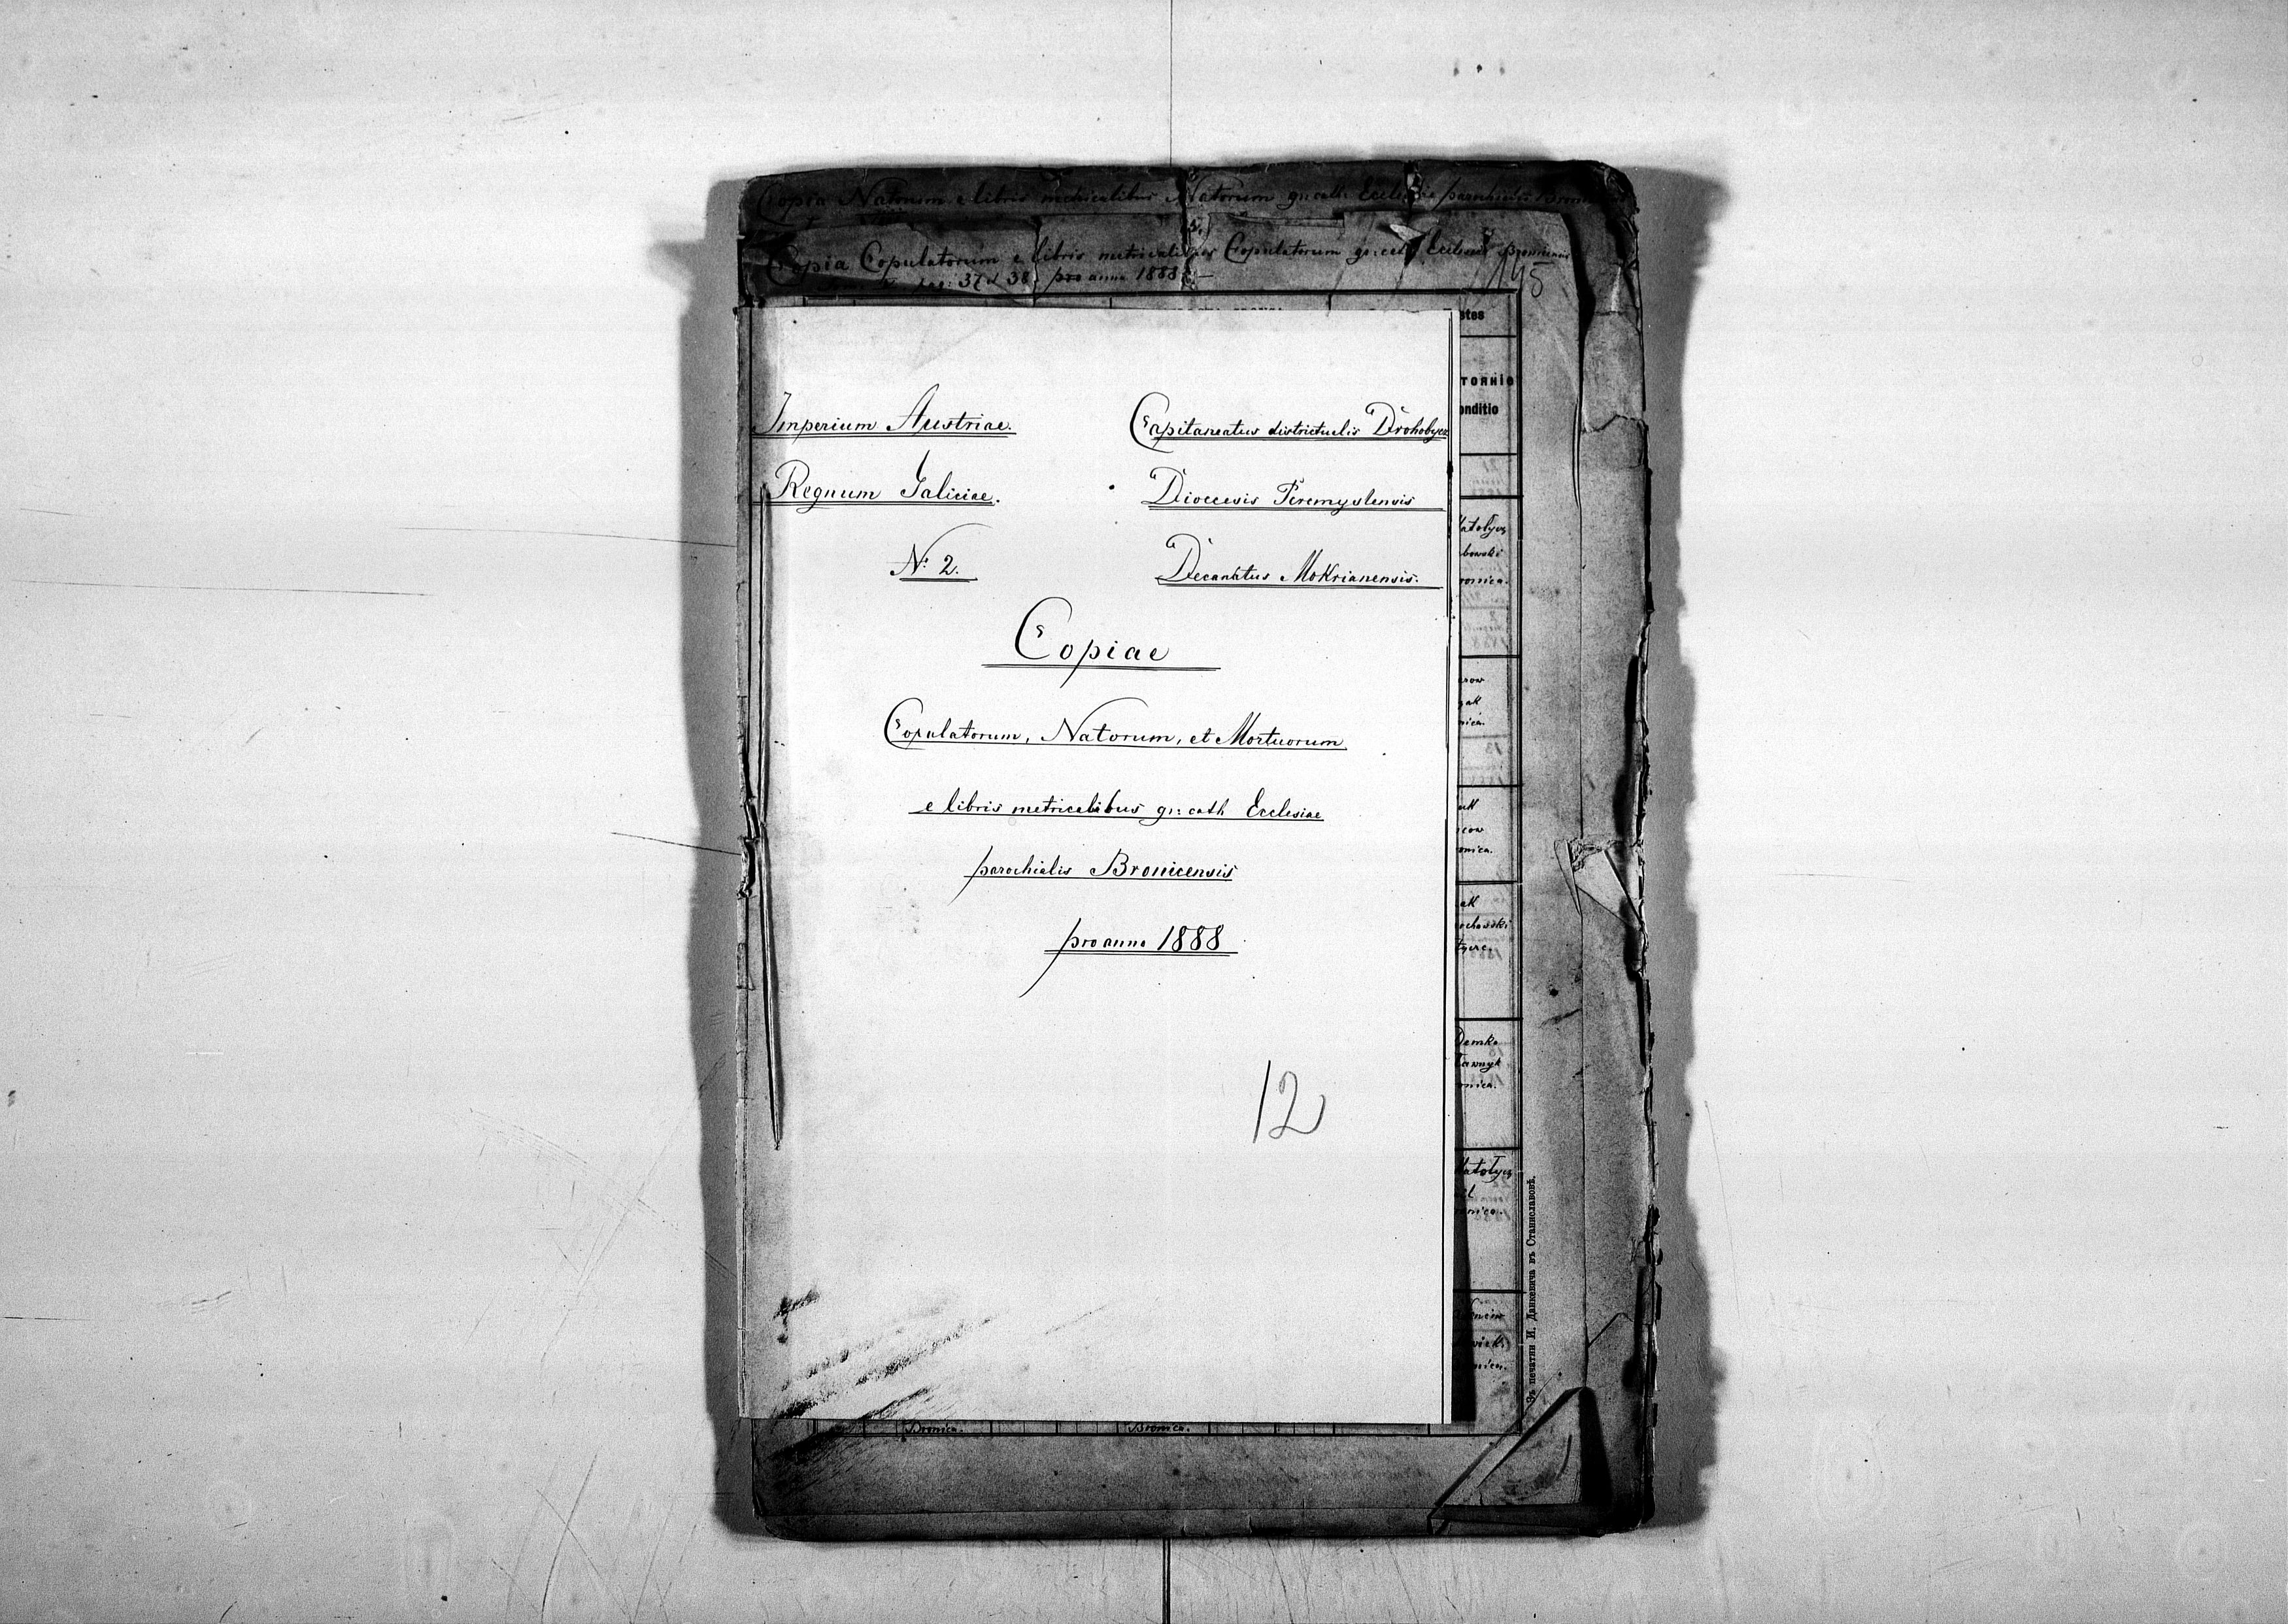 Copia Natorum e libris metricalibus Natorum gr: cath: Ecclesiae parochialis
Copia Copulatorum e libris metricalibus Copulatorum gr: cath Ecclesiae
pag: 37 et 38, pro anno 1888
145
Imperium Austriae.
Capitaneatus districtualis Drohobycz
Regnum Galiciae.
Dioecesis Peremyslensis
Nº 2.
Decanatus Mokrianensis.
Copiae
Copulatorum, Natorum, et Mortuorum
e libris metricalibus gr: cath Ecclesiae
parochialis Bronicensis
pro anno 1888
12
stes
тояніе
onditio
ronica.
nica.
onica.
Demko
onica.
Bronica.
Bronica.
Зъ печатни И. Данкевича въ Станиславовѣ.